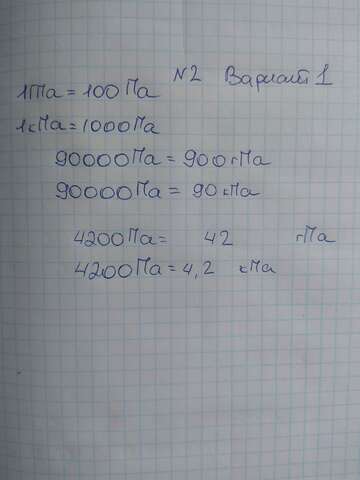 N2 Вариант 1
1гПа = 100Па
1кПа = 1000Па
90000Па = 900гПа
90000Па = 90кПа
4200Па = 42 гПа
4200Па = 4,2 кПа